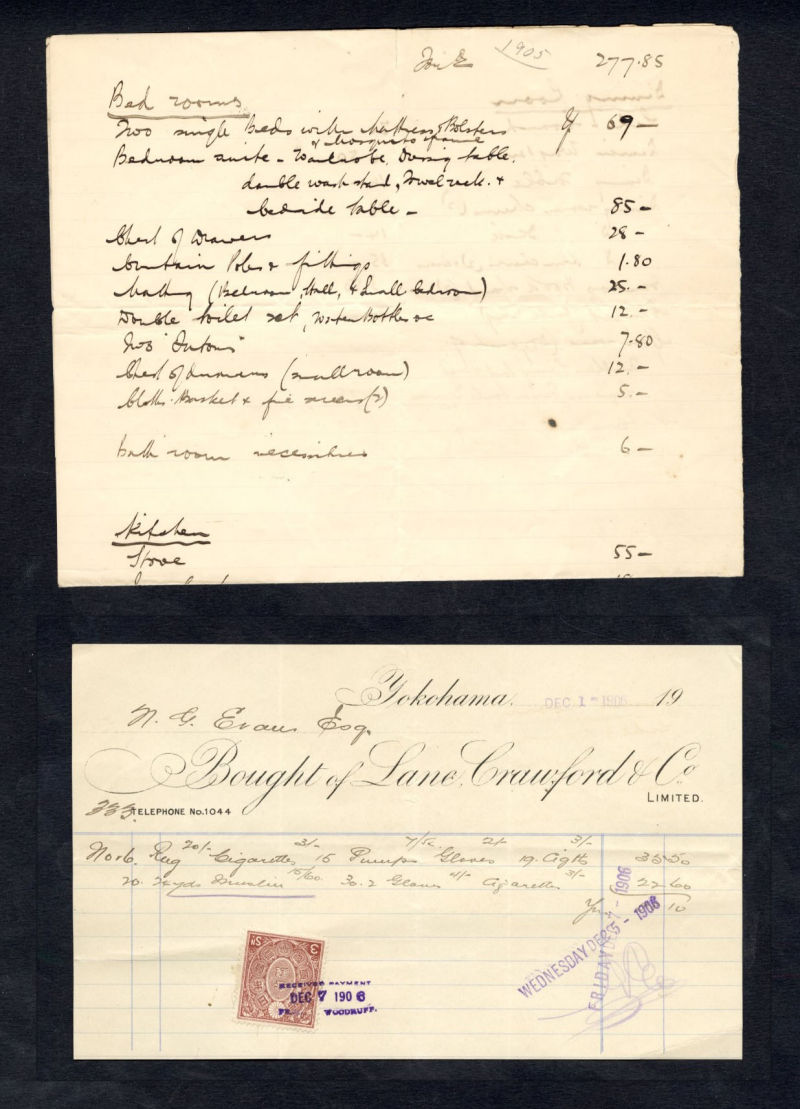 1905 277.85
Bed rooms
Two single Beds with Mattress & Bolsters ¥ 69 –
& Mosquito frame
Bedroom suite – Wardrobe, Dressing table,
double wash stand, Towel rack &
bedside table – 85 –
Chest of Drawers 28 –
Curtain Poles & fittings 1.80
Matting (Bedroom, Hall, & small bedroom) 25. –
Double toilet set, Water Bottles &c 12. –
Two "Futons" 7.80
Chest of drawers (small room) 12. –
Clothes Basket & fire screens (2) 5 –
Bath room necessities 6 –
Kitchen
Stove 55 –
Yokohama. DEC 1 – 1906 19
N. G. Evans Esq.
Bought of Lane, Crawford & Co.
LIMITED.
333 TELEPHONE No. 1044
Nov 6. Rug 20/- Cigarettes 3/- 15 Pumps Gloves 2/- 19. Cigtts 3/- 35 50
20. Muslin 15/60 30. 2 Gloves 4/- Cigarettes 3/- 22 60
10
WEDNESDAY DEC 5 - 1906
FRIDAY DEC 7 - 1906
3 SN
RECEIVED PAYMENT
DEC 7 1906
WOODRUFF.